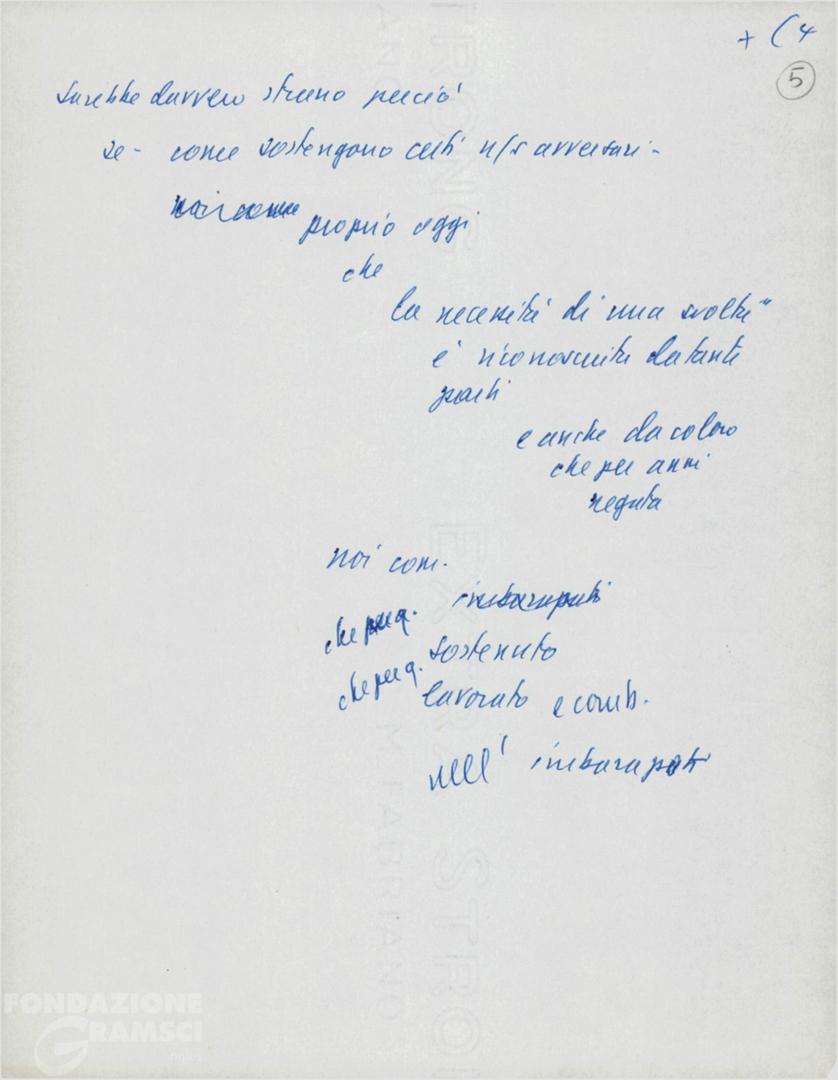 + (4
5
Sarebbe davvero strano perciò
se - come sostengono certi n/s avversari -
noi com
proprio oggi
che
la necessità di una svolta"
è riconosciuta da tante
parti
e anche da coloro
che per anni
negata
noi com.
che per q.
sostenuto
che per q.
lavorato e comb.
nell' imbarazzo
FONDAZIONE
GRAMSCI
onlus
EXTRA STRONG
FABRIANO